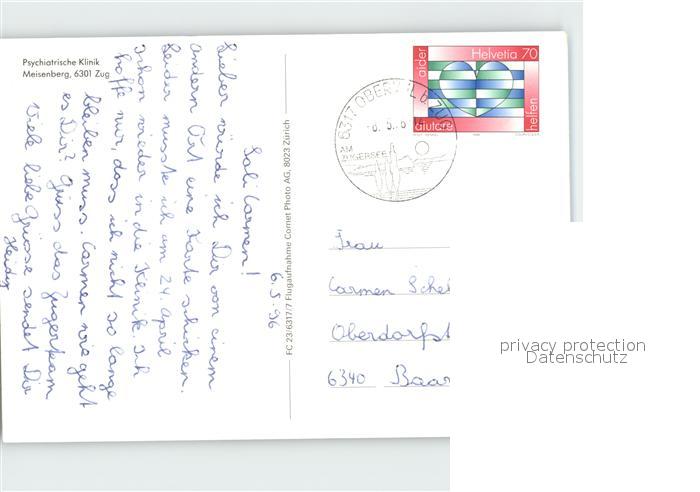 Psychiatrische Klinik
Meisenberg, 6301 Zug
6.5.96
Sali Carmen!
Lieber würde ich Dir von einem
andern Ort eine Karte schicken.
Leider musste ich am 24. April
schon wieder in die Klinik. Ich
hoffe nur, dass ich nicht so lange
bleiben muss. Carmen wie geht
es Dir? Grüss das Zugerteam
Viele liebe Grüsse sendet Dir
Heidy
FC 23:6317/7 Flugaufnahme Comet Photo AG, 8023 Zürich
Helvetia 70
aider
aiutare
helfen
6317 OBERWIL B. ZUG
AM
ZUGERSEE
Frau
Carmen Sche
Oberdorfst
6340 Baar
privacy protection
Datenschutz